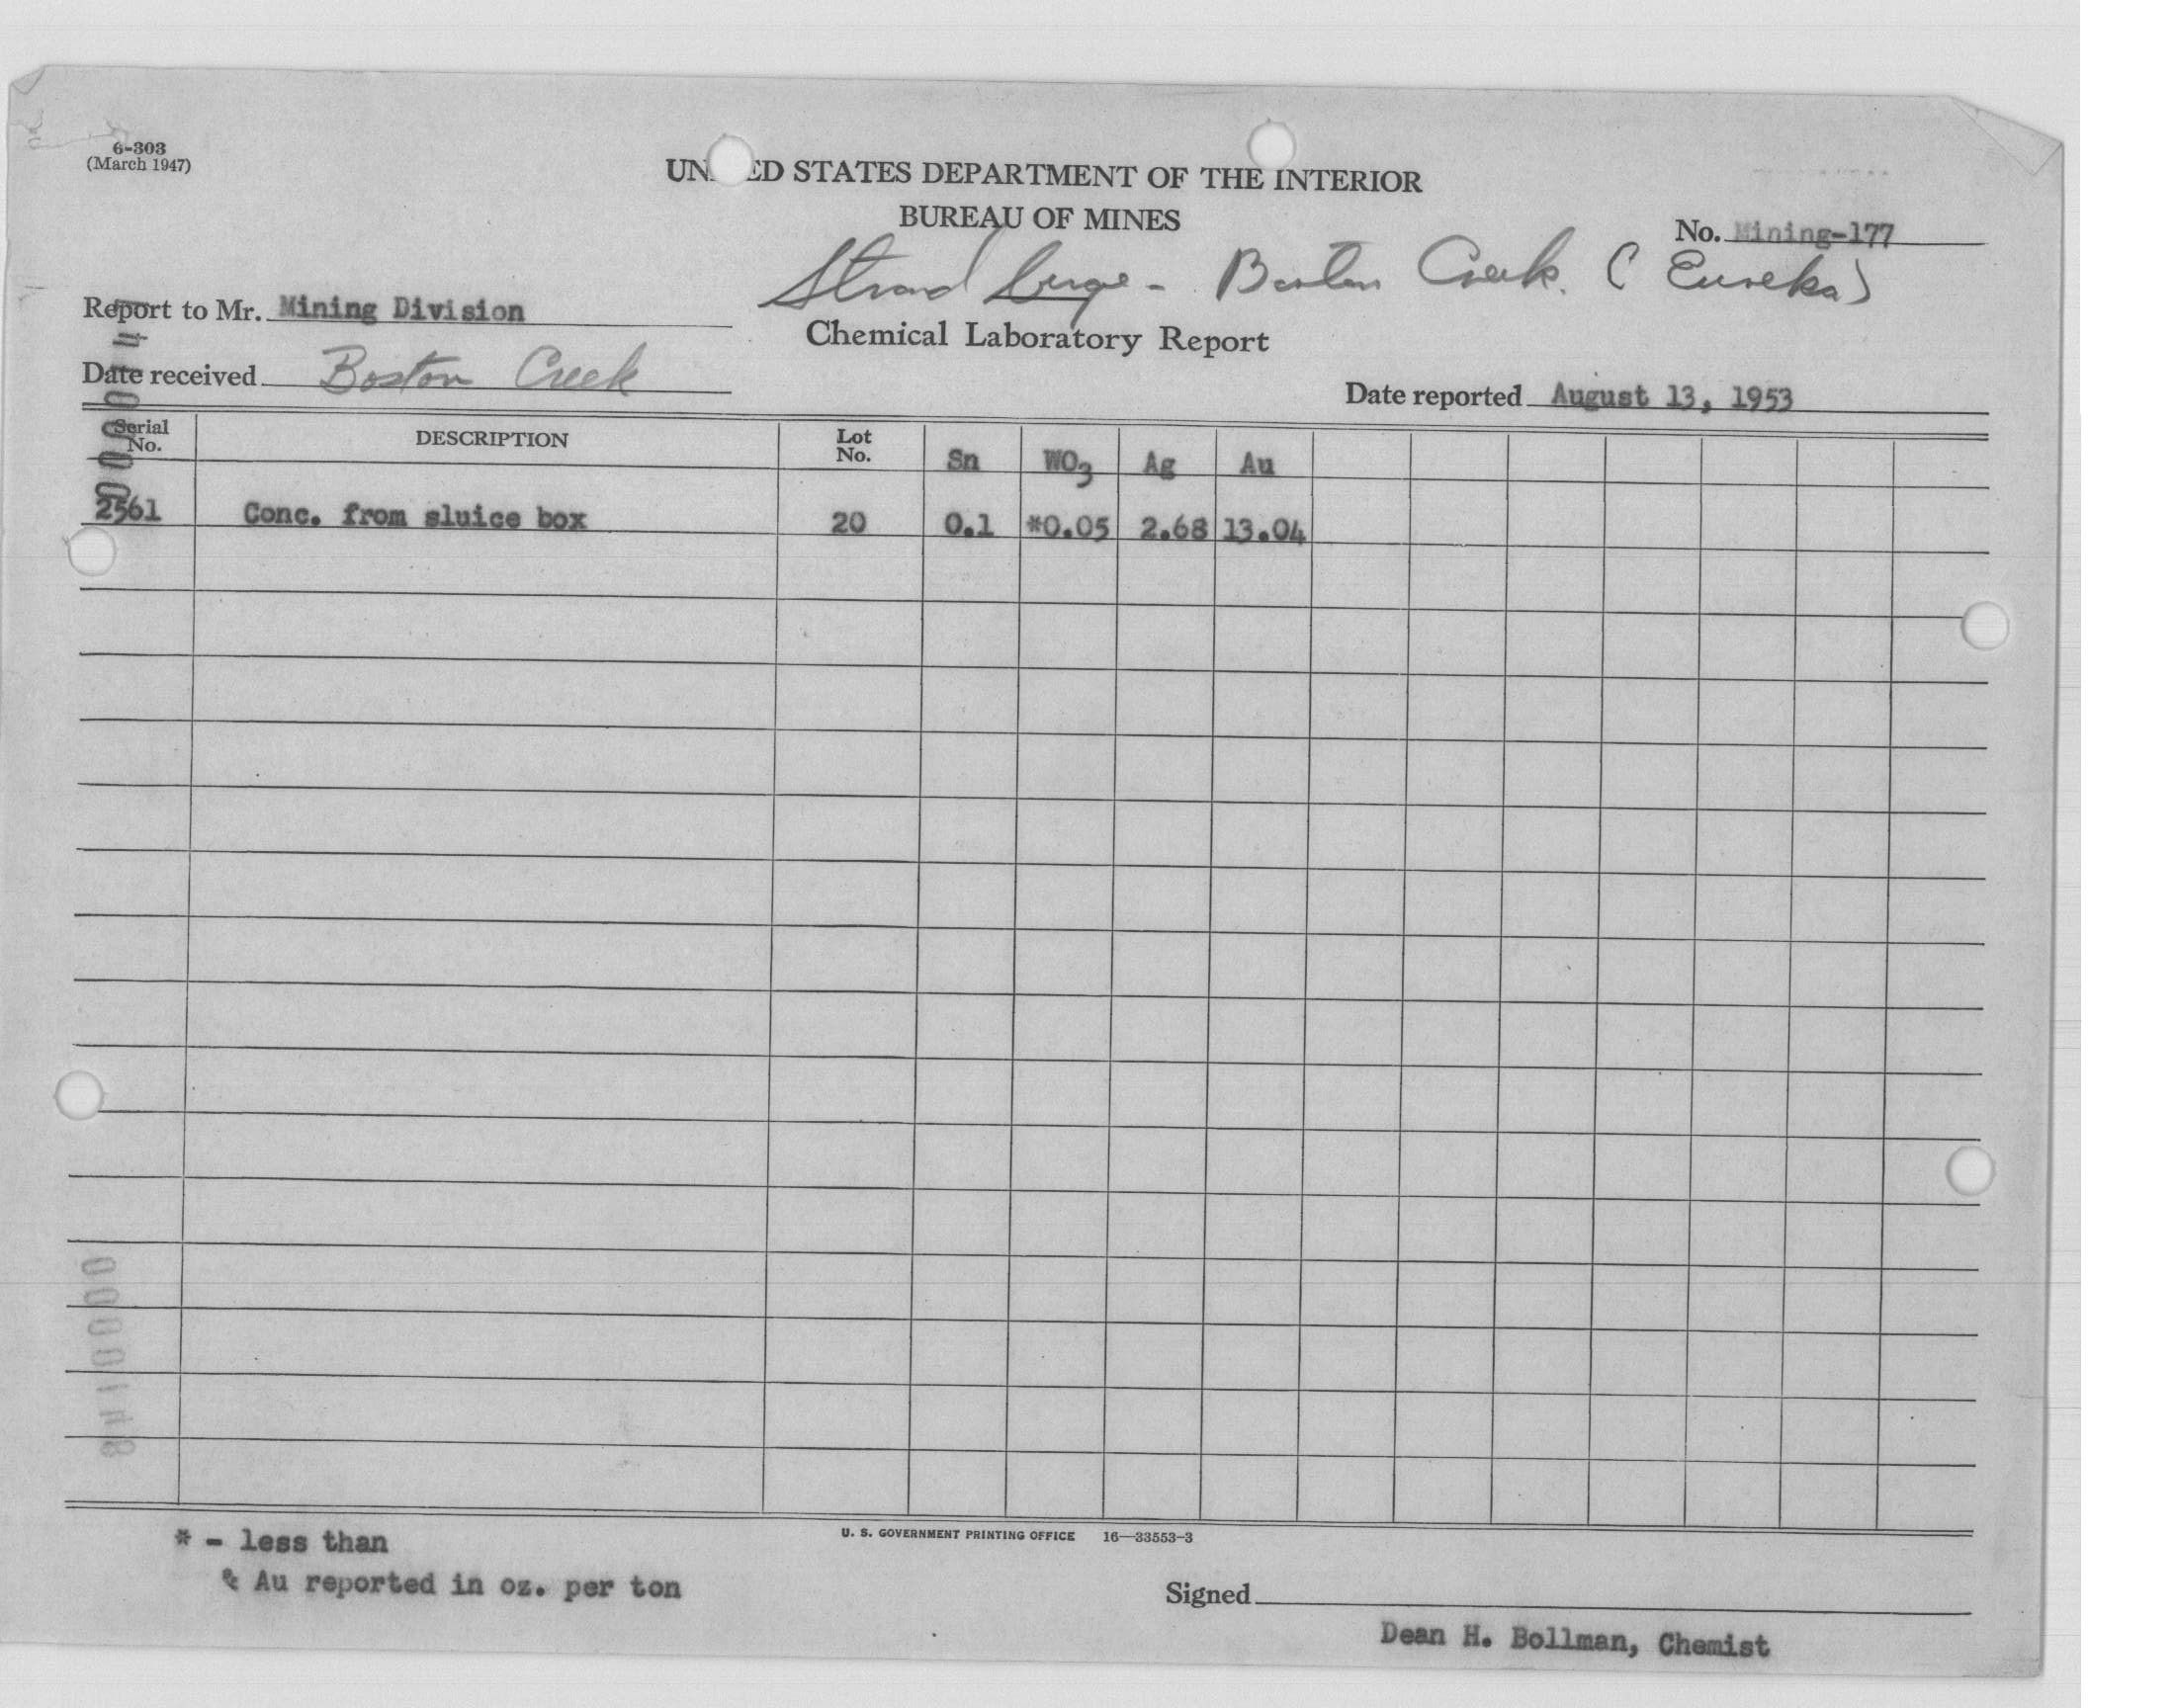 6-303
(March 1947)
UN ED STATES DEPARTMENT OF THE INTERIOR
BUREAU OF MINES
No. Mining-177
Boston Creek. (Eureka)
Report to Mr. Mining Division
Chemical Laboratory Report
Date received Boston Creek
Date reported August 13, 1953
Serial No. DESCRIPTION Lot No. Sn WO3 Ag Au
2561 Conc. from sluice box 20 0.1 *0.05 2.68 13.04
* - less than
U. S. GOVERNMENT PRINTING OFFICE 16—33553-3
& Au reported in oz. per ton
Signed
Dean H. Bollman, Chemist